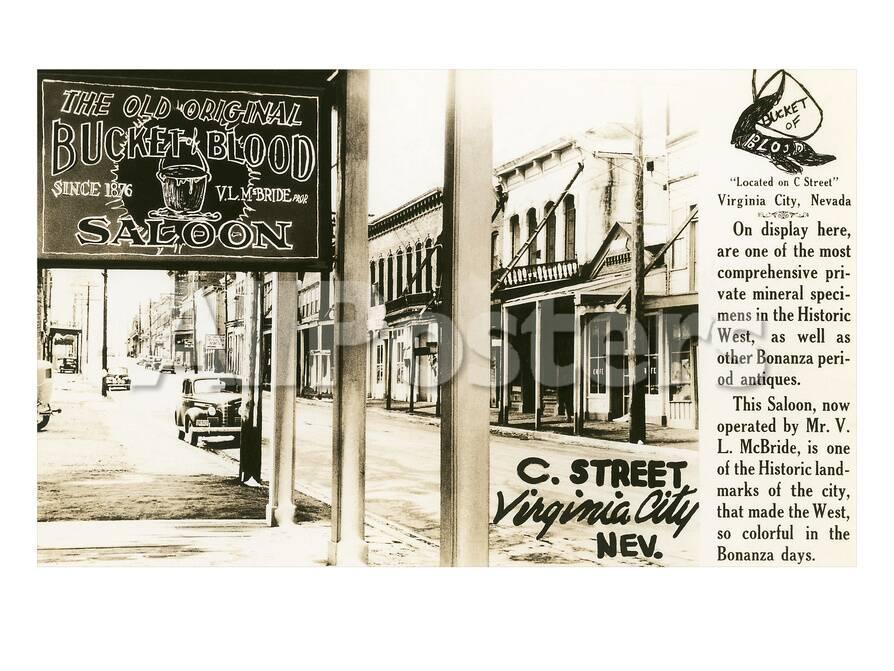 THE OLD ORIGINAL
BUCKET of BLOOD
SINCE 1876
V.L. McBRIDE, PROP.
SALOON
CAFE
C. STREET
Virginia City
NEV.
BUCKET
OF
BLOOD
"Located on C Street"
Virginia City, Nevada
On display here,
are one of the most
comprehensive pri-
vate mineral speci-
mens in the Historic
West, as well as
other Bonanza peri-
od antiques.
This Saloon, now
operated by Mr. V.
L. McBride, is one
of the Historic land-
marks of the city,
that made the West,
so colorful in the
Bonanza days.
AllPosters